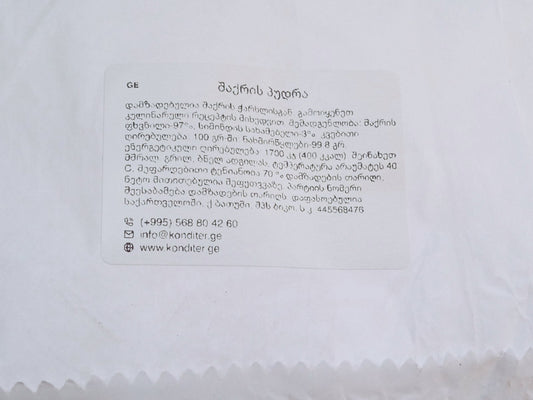 GE
შაქრის პუდრა
დამზადებულია შაქრის ჭარხლისგან. გამოიყენეთ
კულინარული რეცეპტის მიხედვით. შემადგენლობა: შაქრის
ფხვნილი-97%, სიმინდის სახამებელი-3%. კვებითი
ღირებულება: 100 გრ-ში: ნახშირწყლები-99.8 გრ.
ენერგეტიკული ღირებულება: 1700 კჯ (400 კკალ). შეინახეთ
მშრალ, გრილ, ბნელ ადგილას, ტემპერატურა არაუმეტეს 40
C, შეფარდებითი ტენიანობა 70 % დამზადების თარიღი,
ნეტო მითითებულია შეფუთვაზე, პარტიის ნომერი
შეესაბამება დამზადების თარიღს. დაფასოებულია
საქართველოში, ქ. ბათუმი. შპს ბიკო. ს.კ. 445568476
(+995) 568 80 42 60
info@konditer.ge
www.konditer.ge